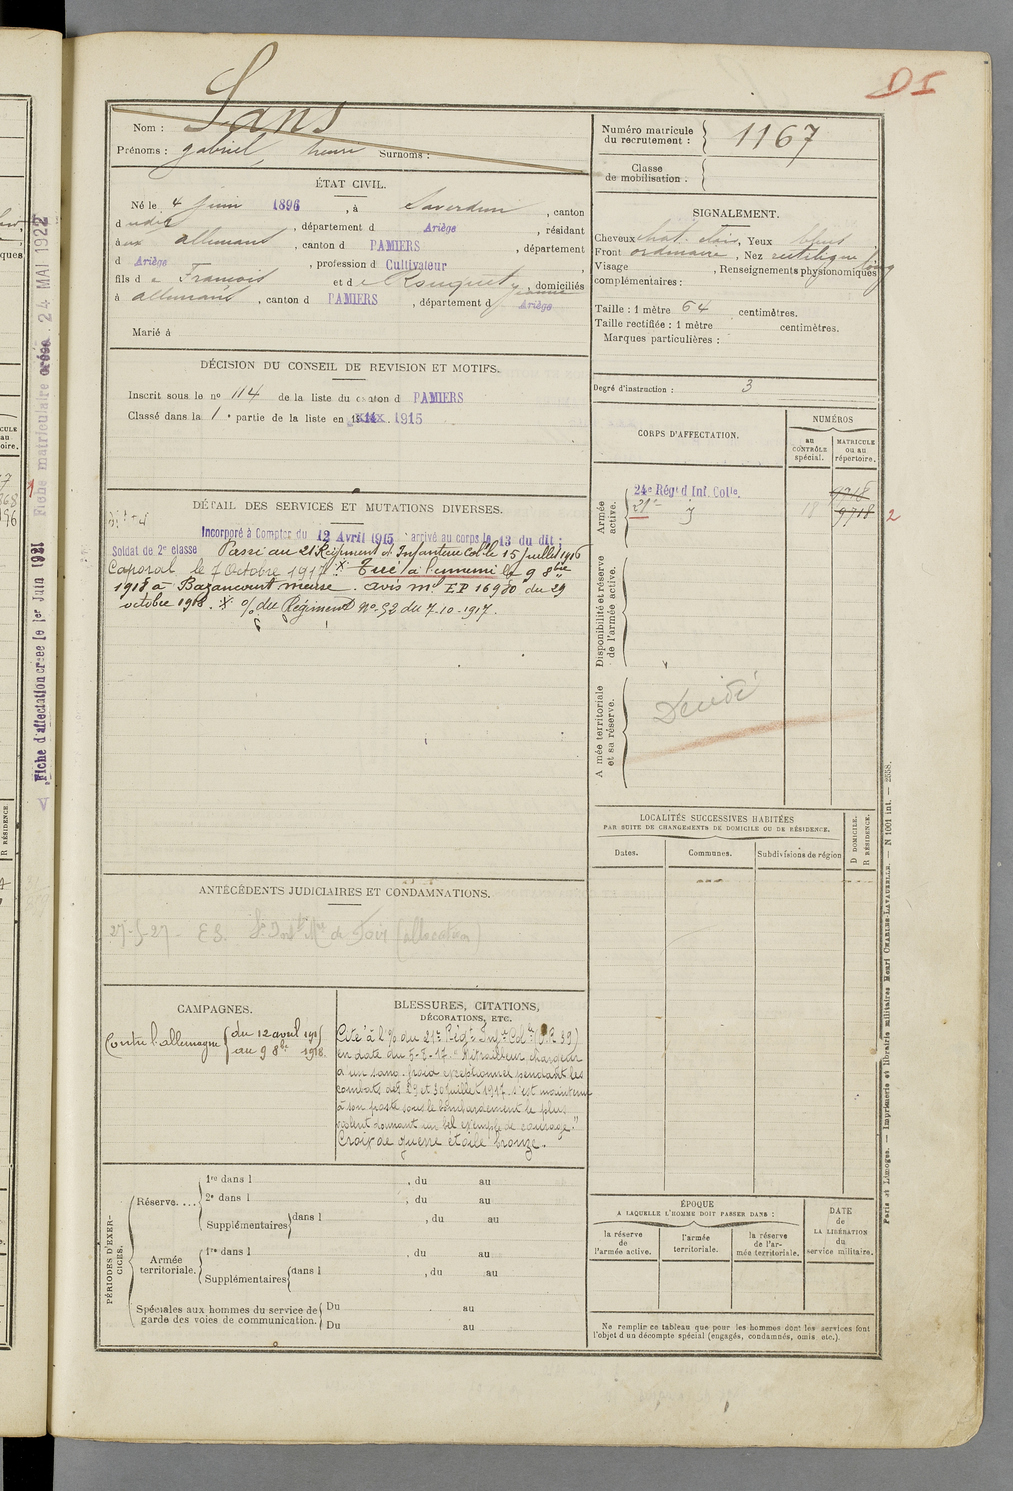 DI
Nom : Sans
Prénoms : gabriel, henri Surnoms :
Numéro matricule du recrutement : 1167
Classe de mobilisation :
ÉTAT CIVIL.
Né le 4 juin 1896, à Saverdun, canton
dudit, département d Ariège, résidant
à aux allemans, canton d PAMIERS, département
d Ariège, profession d Cultivateur
fils de François et de Rouquet jeanne, domiciliés
à allemans, canton d PAMIERS, département d Ariège
Marié à
SIGNALEMENT.
Cheveux chat. clair, Yeux bleus
Front ordinaire, Nez rectiligne
Visage long, Renseignements physionomiques
complémentaires :
Taille : 1 mètre 64 centimètres.
Taille rectifiée : 1 mètre centimètres.
Marques particulières :
Degré d'instruction : 3
DÉCISION DU CONSEIL DE REVISION ET MOTIFS.
Inscrit sous le nº 114 de la liste du canton d PAMIERS
Classé dans la 1e partie de la liste en 1915
CORPS D'AFFECTATION.
NUMÉROS
au CONTRÔLE spécial.
MATRICULE ou au répertoire.
Armée active.
24e Régt d Inf. Colle.
21e
9718
2
Disponibilité et réserve de l'armée active.
A mée territoriale et sa réserve.
Décédé
DÉTAIL DES SERVICES ET MUTATIONS DIVERSES.
Incorporé à Compter du 12 Avril 1915 arrivé au corps le 13 du dit ;
Soldat de 2e classe Passé au 21 Régiment d'Infanterie Colle le 15 juillet 1916
Caporal le 7 Octobre 1917 X. Tué à l'ennemi le 9 8bre
1918 à Bazancourt meuse. avis ml EP 16980 du 29
octobre 1918. X o/ du Régiment Nº 52 du 7.10.1917.
LOCALITÉS SUCCESSIVES HABITÉES
PAR SUITE DE CHANGEMENTS DE DOMICILE OU DE RÉSIDENCE.
Dates.
Communes.
Subdivisions de région
D DOMICILE.
R RÉSIDENCE.
ANTÉCÉDENTS JUDICIAIRES ET CONDAMNATIONS.
27-5-27 - E.S. de Foix (allocation)
CAMPAGNES.
Contre l'allemagne du 12 avril 1915
au 9 8bre 1918.
BLESSURES, CITATIONS,
DÉCORATIONS, ETC.
Cité à l'o/ du 21e Régt Inft Col
en date du "Mitrailleur chargeur
d'un sang-froid exceptionnel pendant les
combats des 29 et 30 juillet 1917. s'est maintenu
à son poste sous le bombardement le plus
violent donnant un bel exemple de courage."
Croix de guerre étoile bronze.
PÉRIODES D'EXERCICES.
Réserve....
1re dans l , du au
2e dans l , du au
Supplémentaires dans l , du au
Armée territoriale.
1re dans l , du au
Supplémentaires dans l , du au
Spéciales aux hommes du service de garde des voies de communication.
Du au
Du au
ÉPOQUE
A LAQUELLE L'HOMME DOIT PASSER DANS :
la réserve de l'armée active.
l'armée territoriale.
la réserve de l'armée territoriale.
DATE de LA LIBÉRATION du service militaire.
Ne remplir ce tableau que pour les hommes dont les services font
l'objet d un décompte spécial (engagés, condamnés, omis etc.).
Paris et Limoges. — Imprimerie et librairie militaires Henri CHARLES-LAVAUZELLE. — N 1001 int. — 2558.
Fiche d'affectation créée le 1er Juin 1921 Fiche matriculaire créée 24 MAI 1922